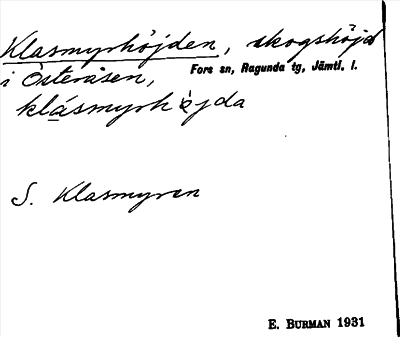 Klasmyrhöjden, skogshöjd
i Österåsen, Fors sn, Ragunda tg, Jämtl. l.
klásmyrhöjda
S. Klasmyren
E. BURMAN 1931